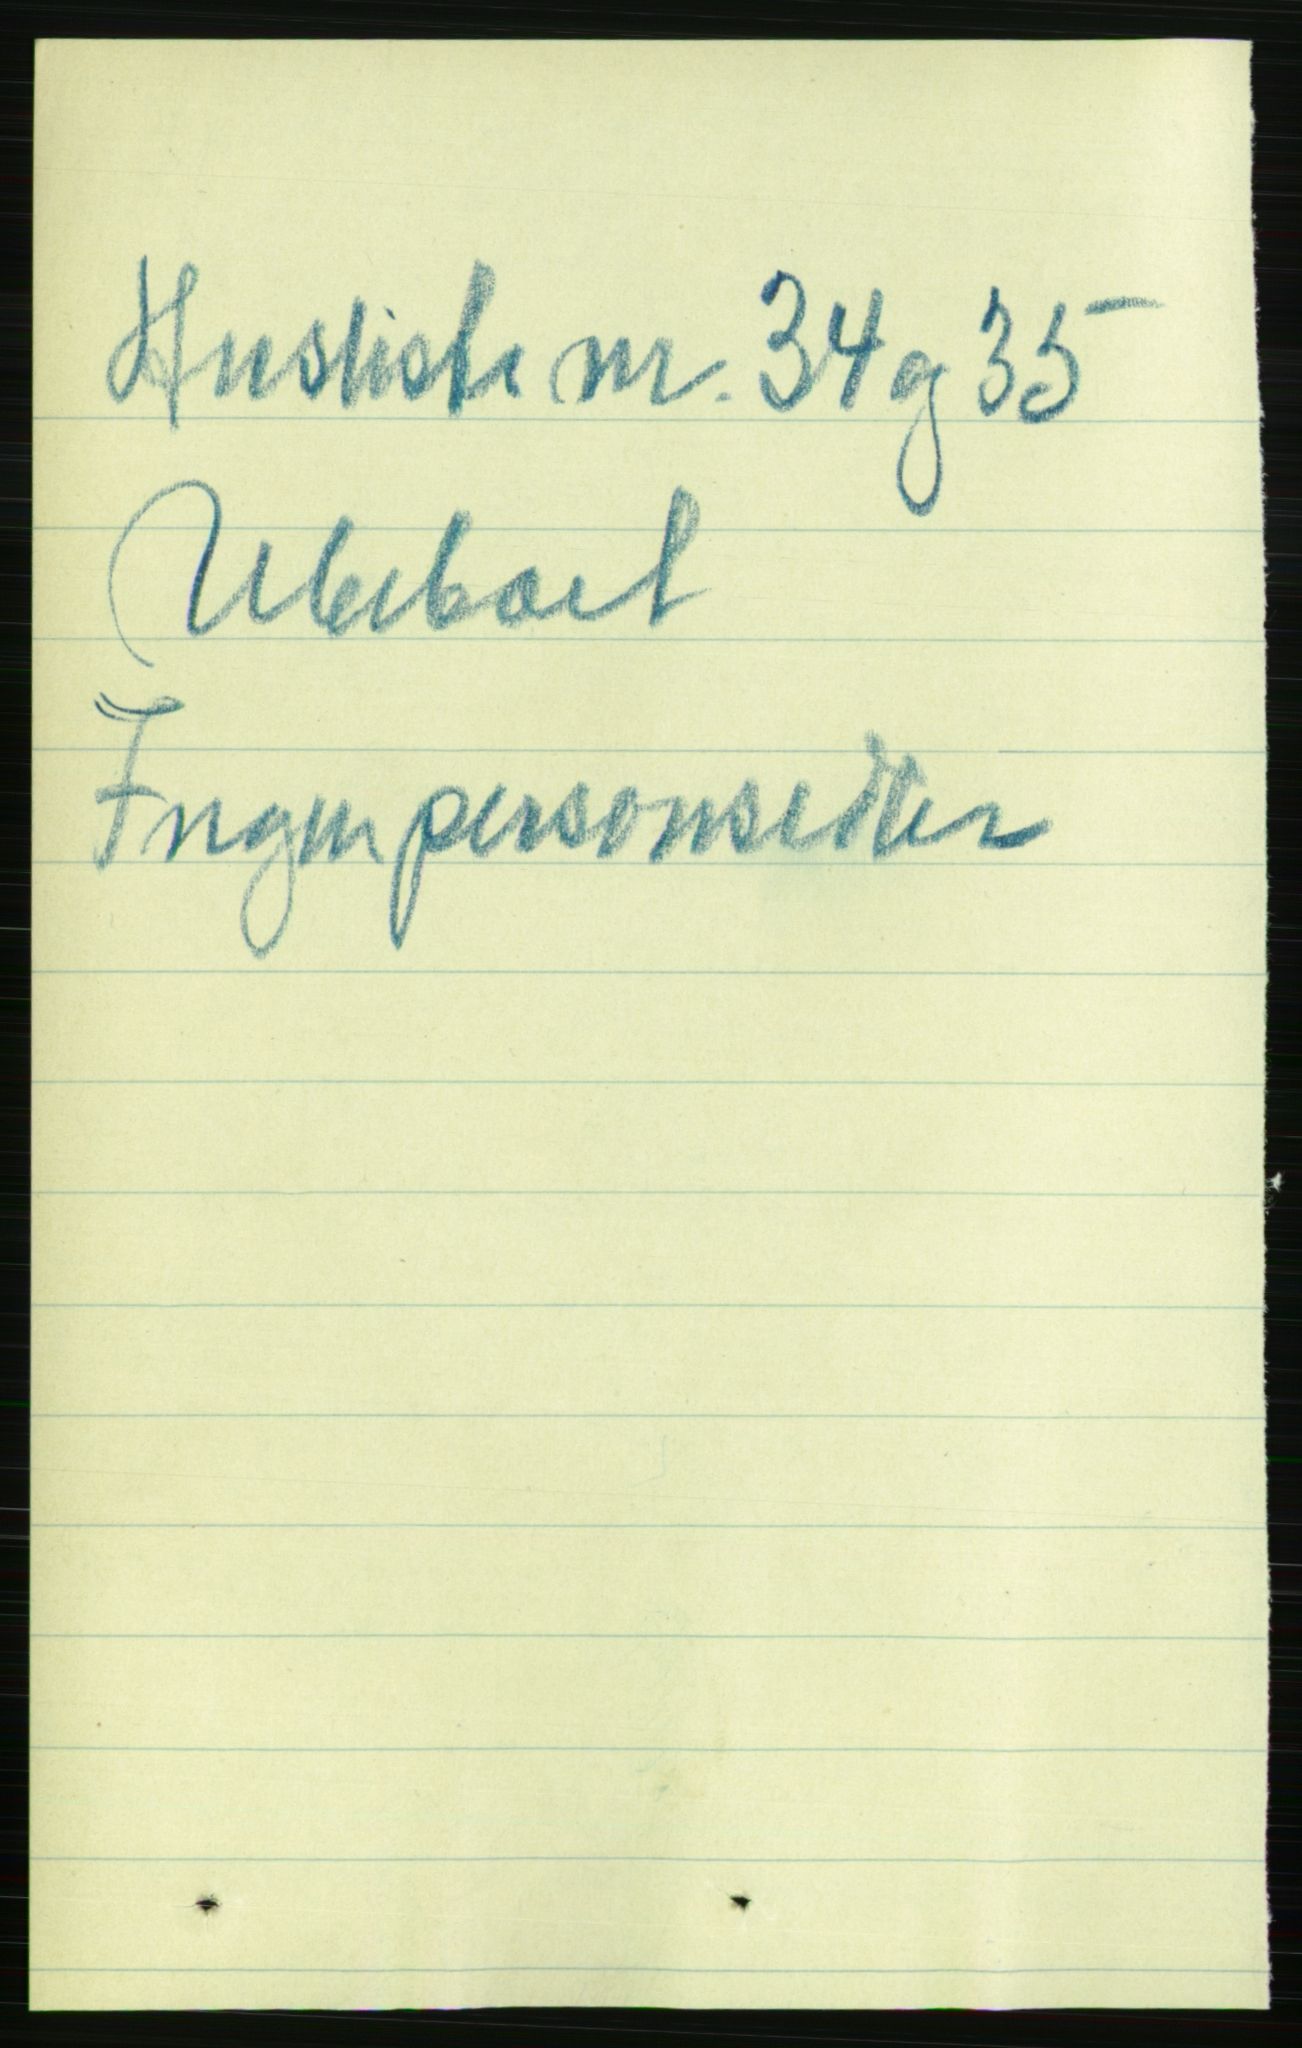 Husliste nr. 34 og 35
Ubeboet
Ingen personsedler